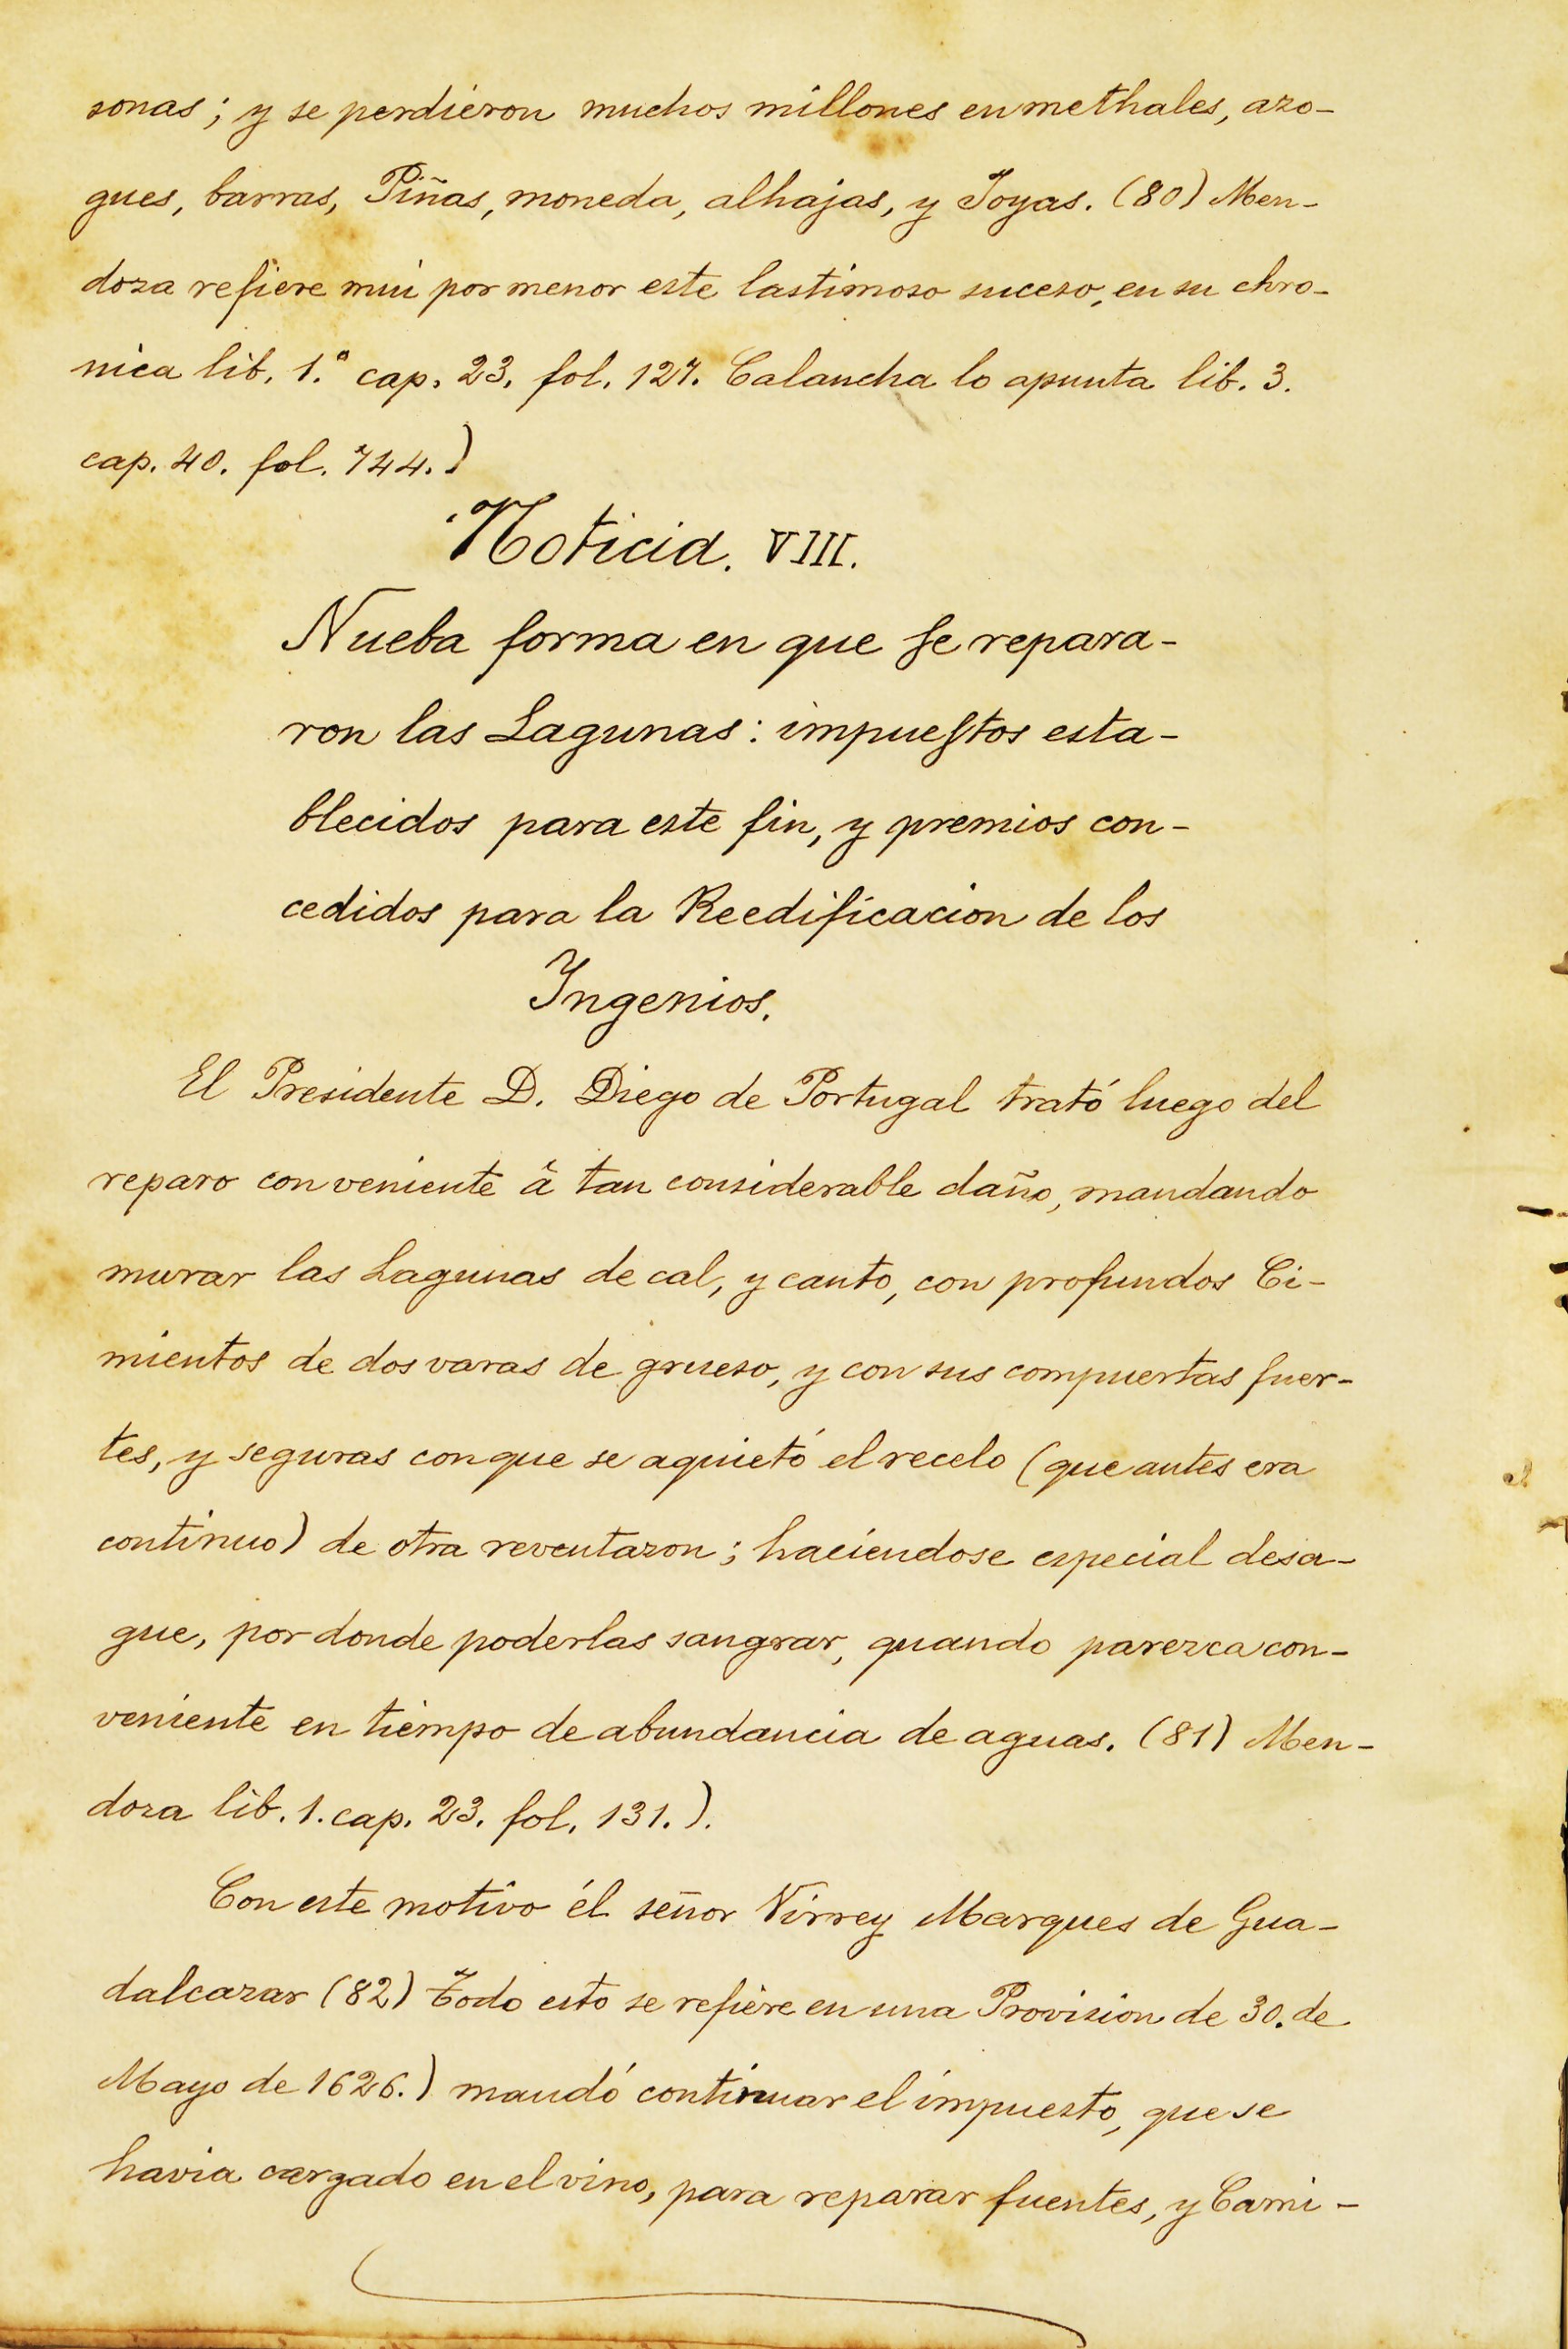 sonas; y se perdieron muchos millones en methales, azo-
gues, barras, Piñas, moneda, alhajas, y Joyas. (80) Men-
doza refiere mui por menor este lastimoso suceso, en su chro-
nica lib. 1.º cap. 23. fol. 127. Calancha lo apunta lib. 3.
cap. 40. fol. 744.)
Noticia. VIII.
Nueba forma en que se repara-
ron las Lagunas: impuestos esta-
blecidos para este fin, y premios con-
cedidos para la Reedificacion de los
Ingenios.
El Presidente D. Diego de Portugal trató luego del
reparo conveniente â tan considerable daño, mandando
murar las Lagunas de cal, y canto, con profundos Ci-
mientos de dos varas de grueso, y con sus compuertas fuer-
tes, y seguras con que se aquietó el recelo (que antes era
continuo) de otra reventazon; haciendose especial desa-
gue, por donde poderlas sangrar, quando parezca con-
veniente en tiempo de abundancia de aguas. (81) Men-
doza lib. 1. cap. 23. fol. 131.).
Con este motivo él señor Virrey Marques de Gua-
dalcazar (82) Todo esto se refiere en una Provision de 30. de
Mayo de 1626.) mandó continuar el impuesto, que se
havia cargado en el vino, para reparar fuentes, y Cami-